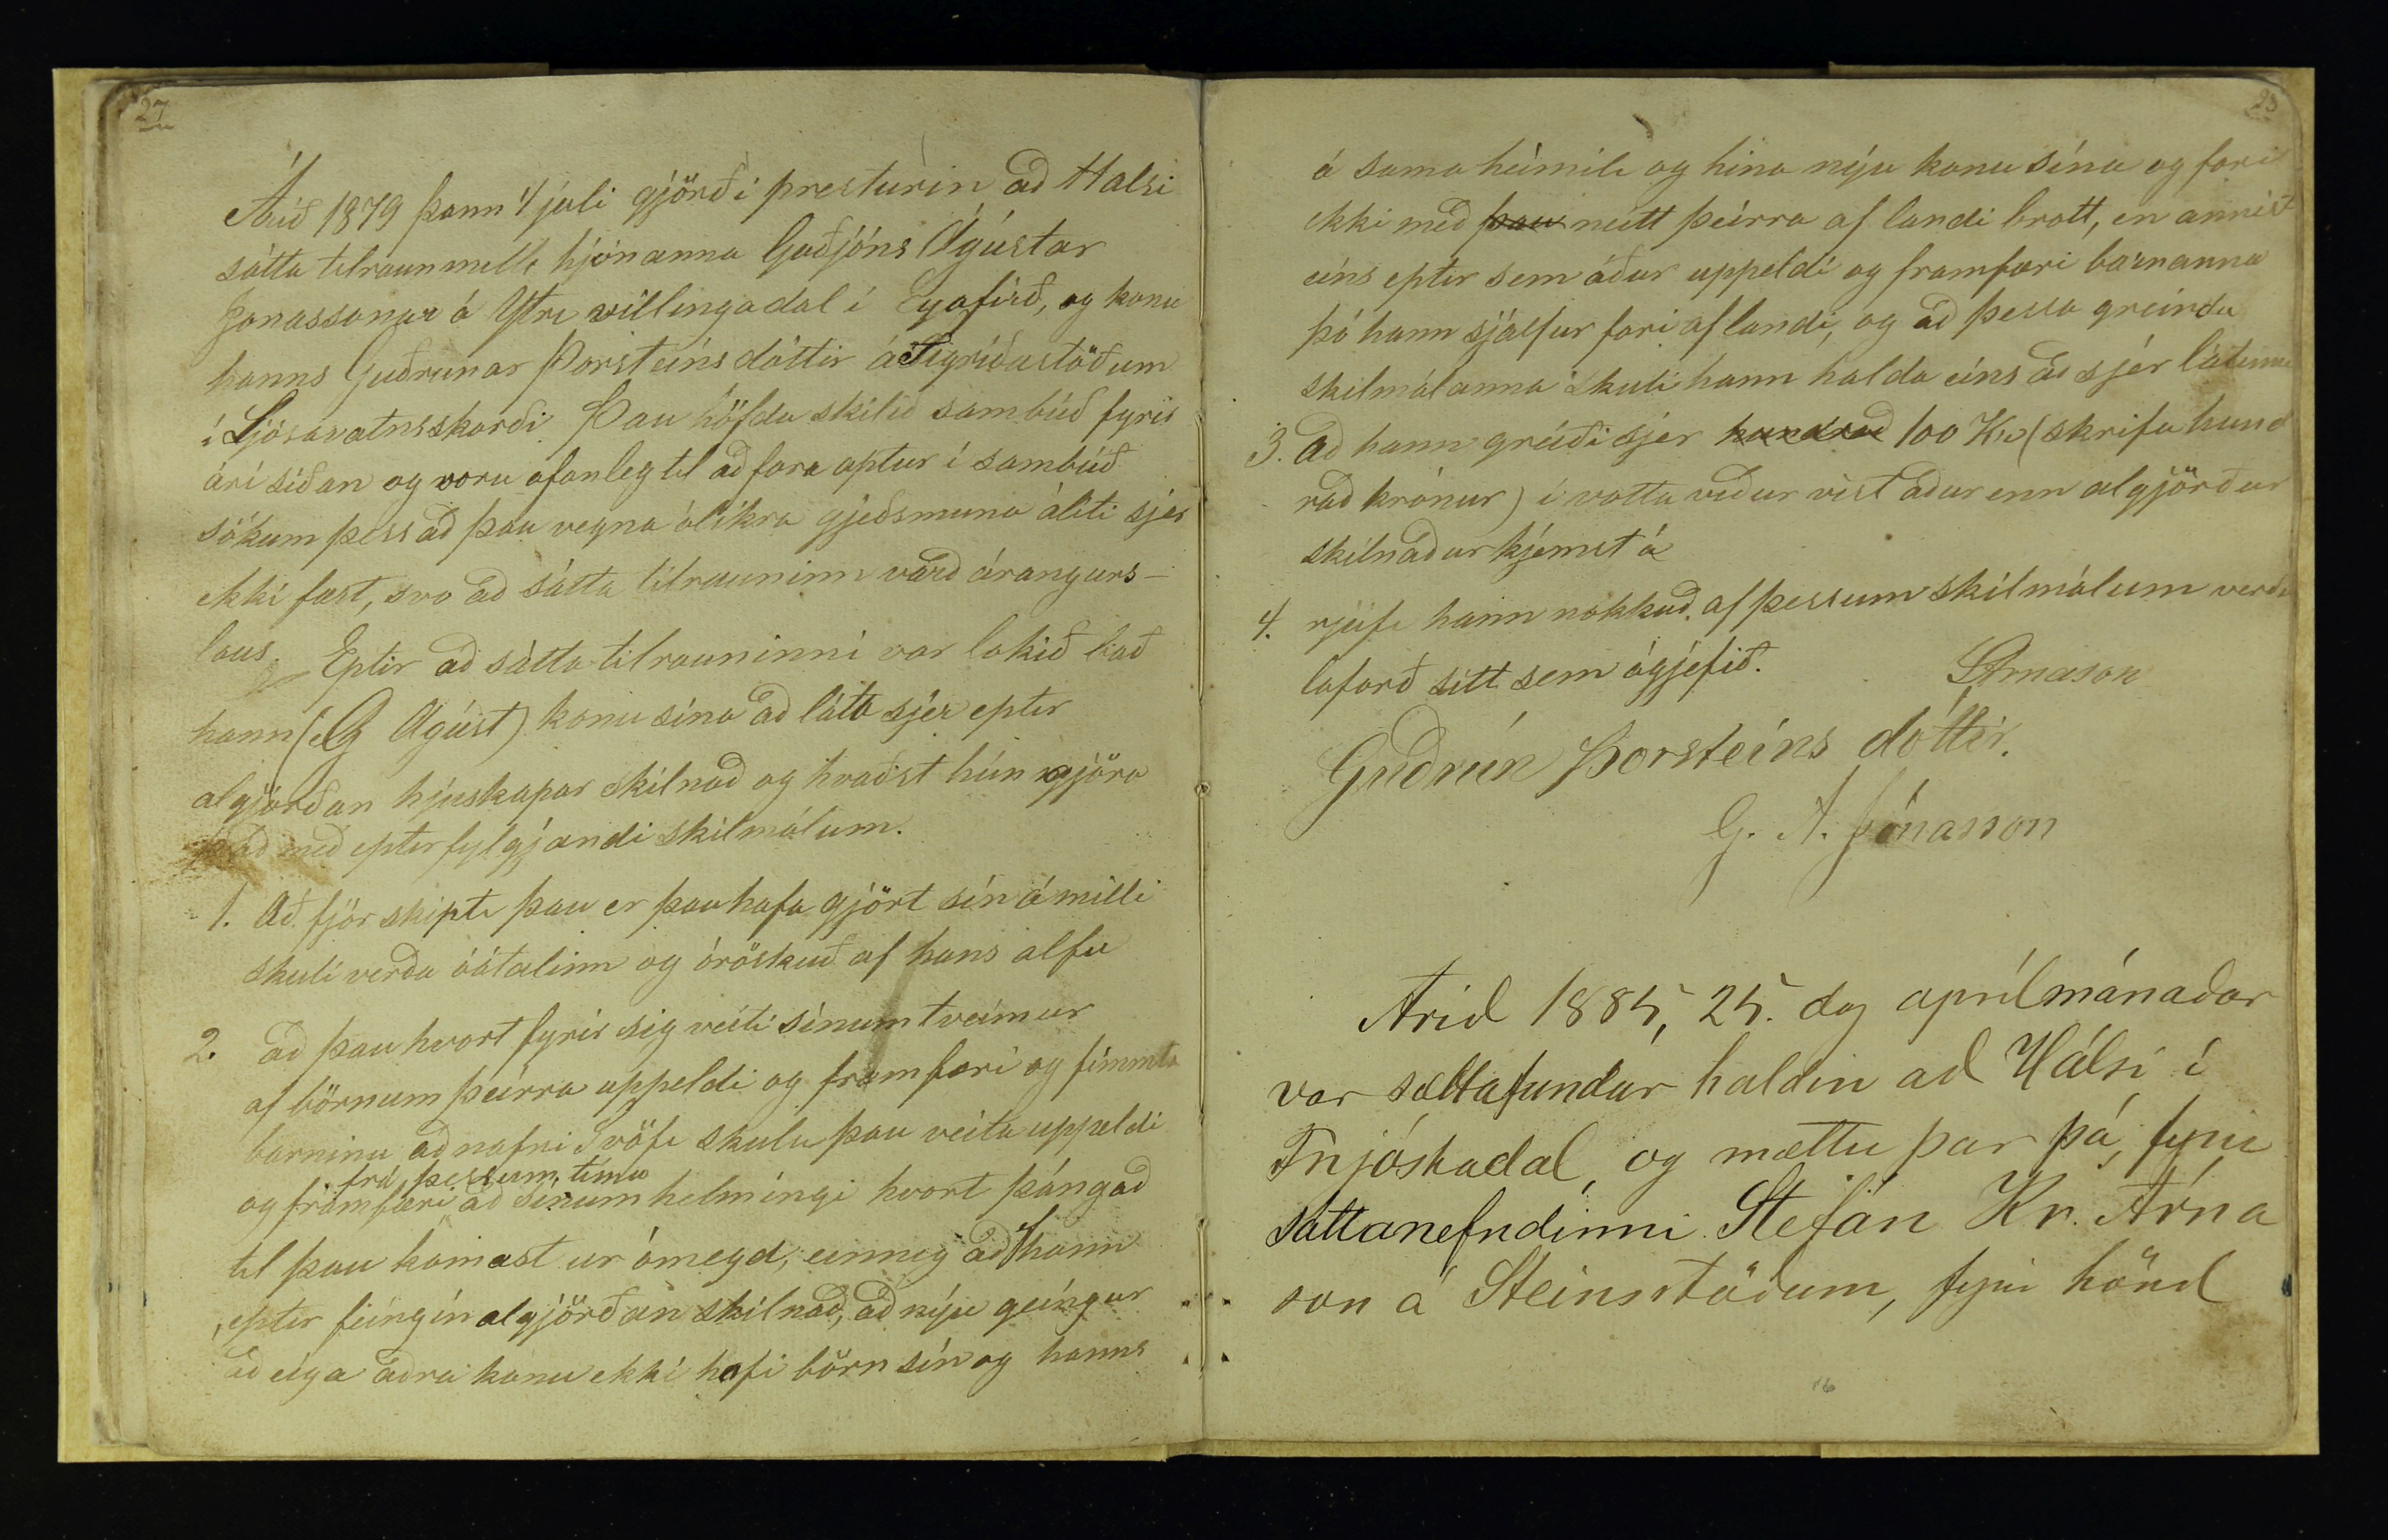 27
Árið 1879 þann 4 júli gjörði presturin að Halsi
sátta tilraun mille hjónanna Guðjóns Ágústar
Jonassonar á Ytri villingadal í Eyafirð, og konu
hanns Guðrunar Þorsteinsdóttir á Sigríðastöðum
í Ljósavatnsskarði. Þau höfðu skilið sambúð fyrir
ári síðan og voru ofanleg til að fara aptur í sambúð
sökum þess að þau vegna ólíkra gjeðsmuna áliti sjer
ekki fært, svo að sátta tilrauninn varð árangurs-
laus. Eptir að sátta tilrauninni var lokið bað
hann (G Ágúst) konu sína að láta sjer eptir
algjörðan hjuskapar skilnað og kvaðst hún gjöra
það með epterfylgjandi skilmálum.
1. Að fjár skipte þau er þau hafa gjört sín á milli
skuli verða óátalinn og óröskuð af hans alfu
2. að þau hvort fyrir sig veiti sínum tveimur
af börnum þeirra uppeldi og framfæri og fimmta
barninu að nafni Svöfe skulu þau veita uppeldi
frá þessum tíma
og framfæri að sínum helmíngi hvort þángað
til þau komast ur ómegd, einnig að hann
eptir feingin algjörðan skilnað, að nýu geingur
að eiga aðra konu ekki hafi börn sín og hanns
28
á sama heimili og hina nýu konu sína og fari
ekki með þau neitt þeirra af landi brott, en annist
eins eptir sem áður uppeldi og framfæri barnanna
þó hann sjálfur fari af landi, og að þessa greindu
skilmálanna skuli hann halda eins að sjer látinni
3. Að hann greiði sjer hundrað 100 Kr (skrifa hund
rað krónur) i votta viður vist aður enn algjörður
skilnaður kjemst á
4. rjufe hann nokkuð af þessum skilmálum verði
loforð sitt sem ógjefið.
SÁrnason
Guðrún Þorsteins dóttir.
G. A. Jónasson
Arið 1885, 25. dag aprílmánaðar
var sættafundur haldin að Hálsi í
Fnjóskadal, og mættu þar þá, fyrir
sattanefndinni Stefán Kr. Árna
son á Steinsstöðum, fyrir hönd
16